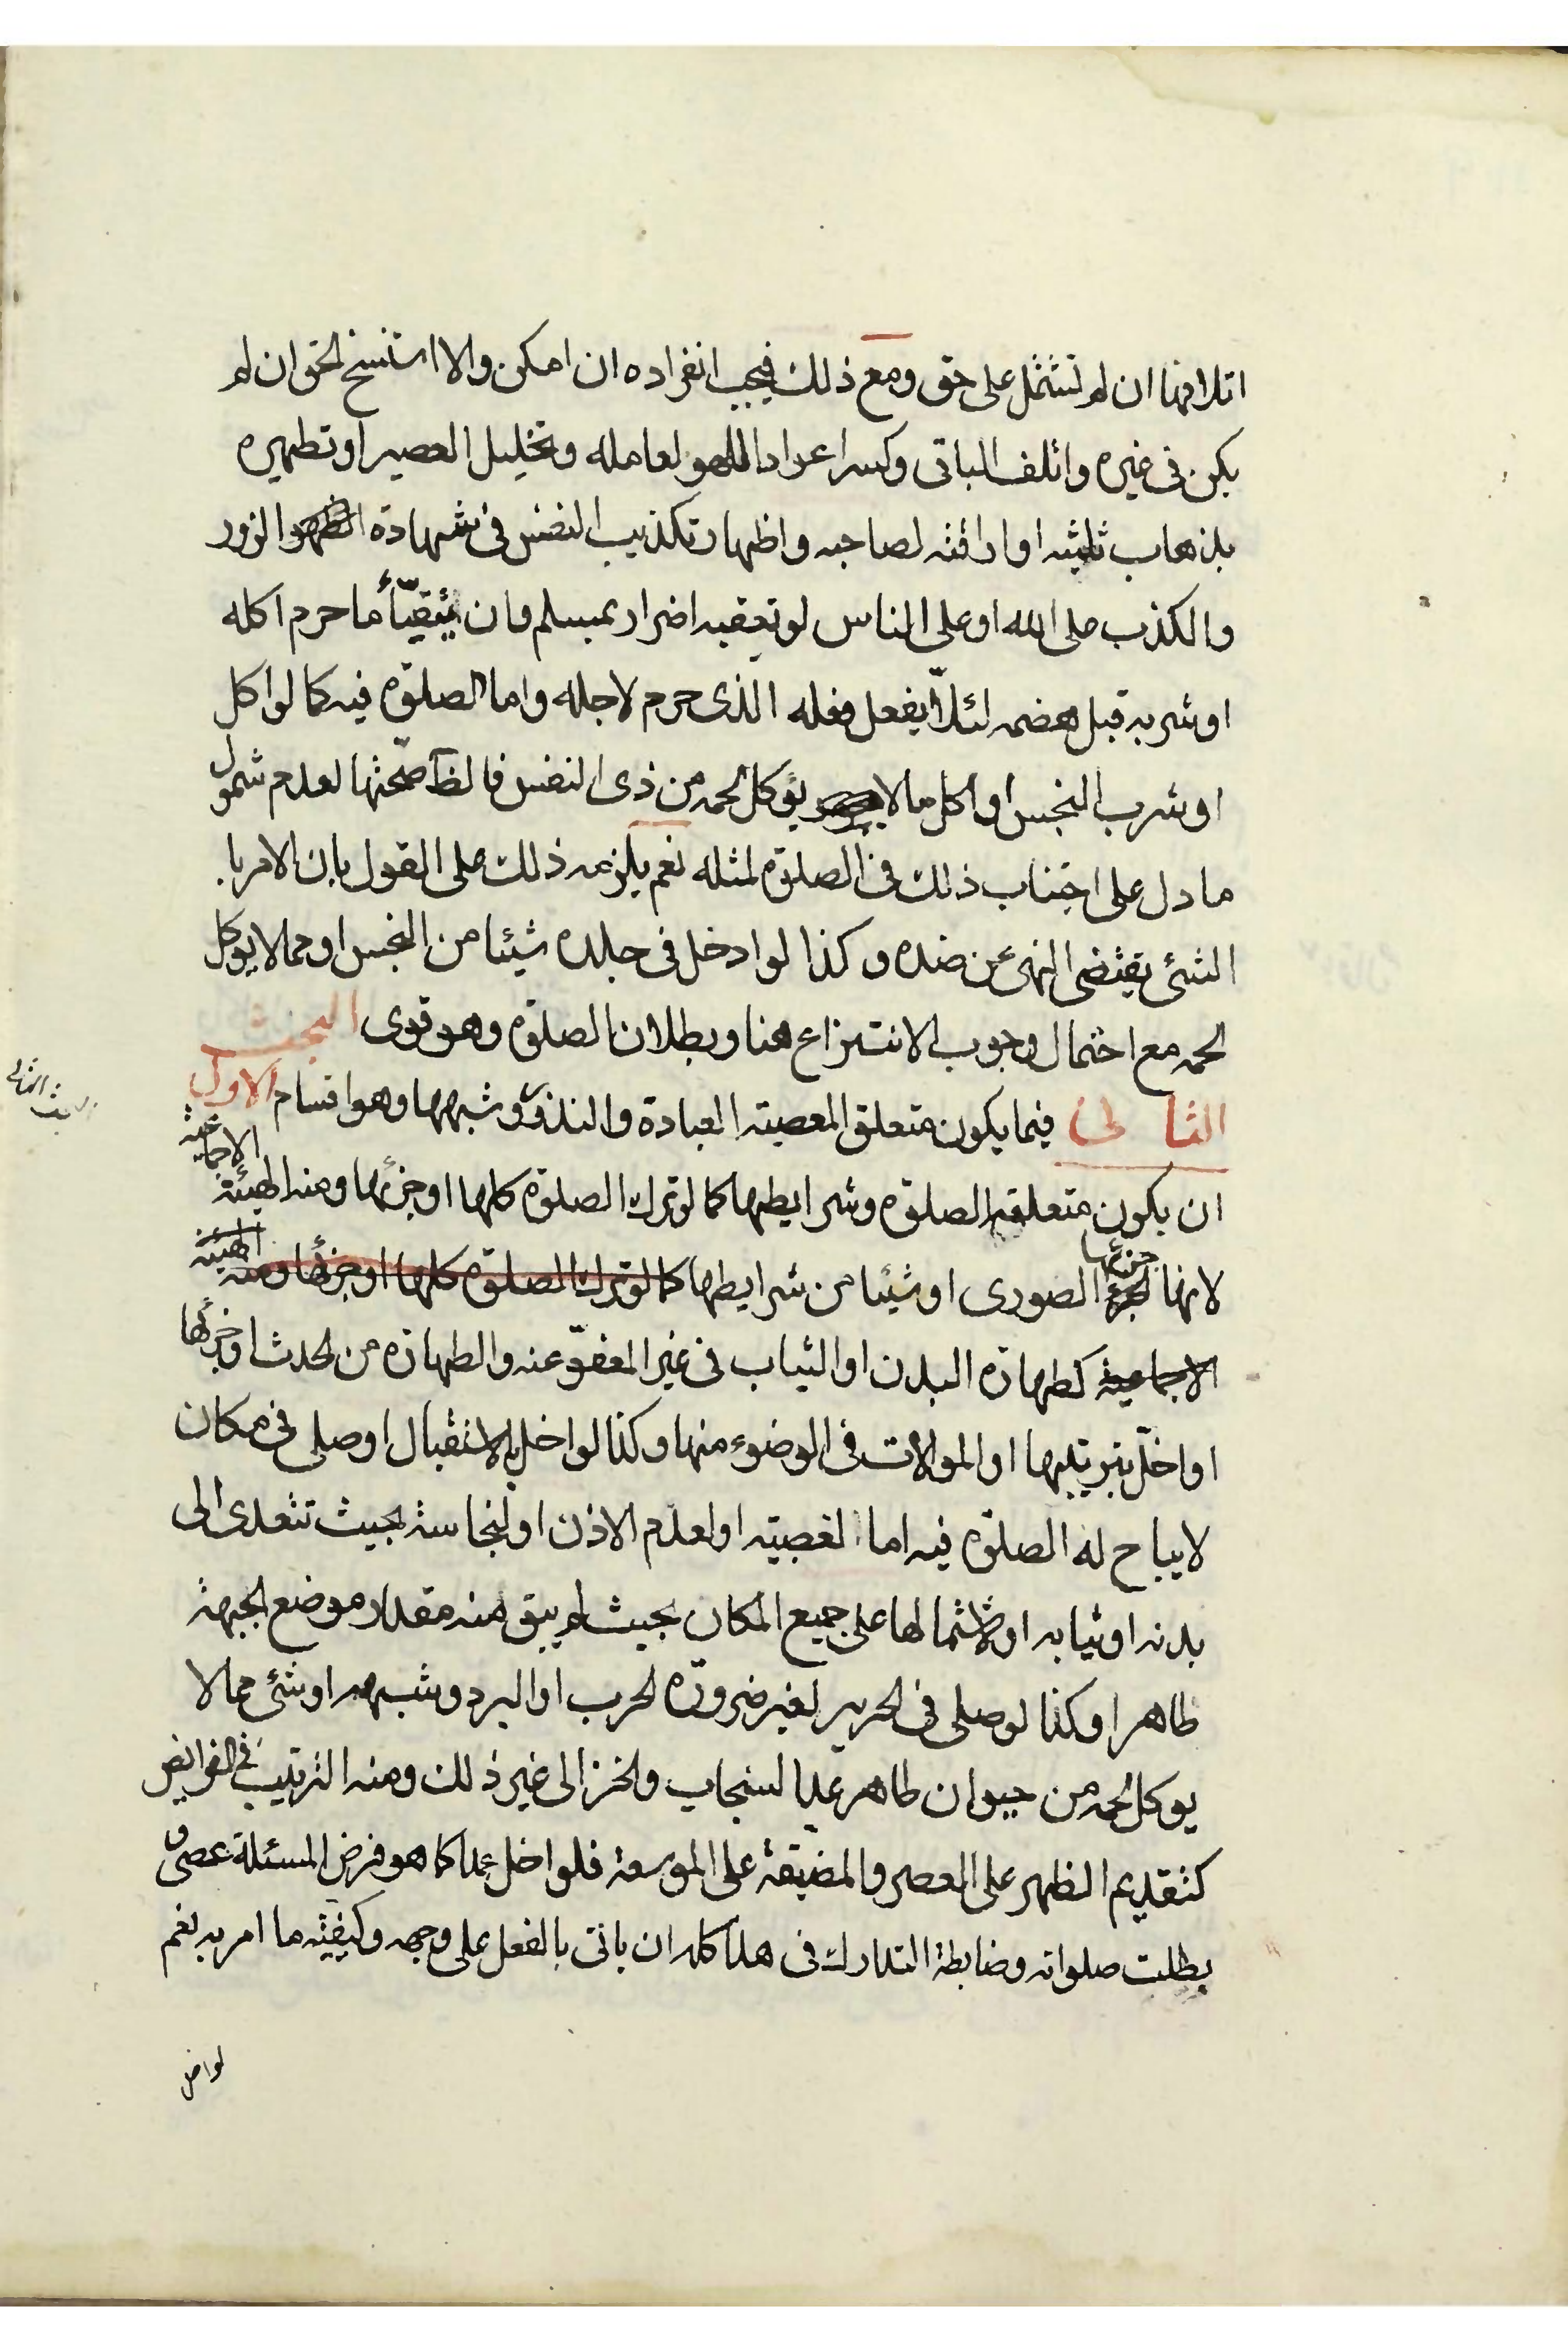 اتلافها ان لم تشتمل على حق ومع ذلك فيجب انفراده ان امكن والا استنسخ الحق ان لم
يكن فى غيره واتلف الباقى وكسر اعواد اللهو لعامله وتخليل العصير او تطهيره
بذهاب ثلثيه او اراقته لصاحبه واظهار تكذيب النفس فى شهادة الزور
والكذب على الله او على الناس لو تعقبه اضرار بمسلم وان يتقيّأ ما حرم اكله
او شربه قبل هضمه لئلّا يفعل فعله الذى حرم لاجله واما الصلوة فيه كما لو اكل
او شرب النجس او اكل ما لا يؤكل لحمه من ذى النفس فالظا صحّتها لعدم شمول
ما دل على اجتناب ذلك فى الصلوة لمثله نعم يلزمه ذلك على القول بان الامر با
الشئ يقتضى النهى عن ضده وكذا لو ادخل فى جلده شيئا من النجس او مما لا يوكل
لحمه مع احتمال وجوب الانتزاع هنا وبطلان الصلوة وهو قوى البحث
الثانى فيما يكون متعلق المعصية العبادة والنذور وشبهها وهو اقسام الاول
البحث الثانى
ان يكون متعلقه الصلوة وشرايطها كما لو ترك الصلوة كلها او جزئها ومنه الهيئة الاجماعية
لانها جزئها الصورى او شيئا من شرايطها كما لو ترك الصلوة كلها او جزئها ومنه الهيئة
الاجماعية كطهارة البدن او الثياب فى غير المعفوّ عنه والطهارة من الحدث او جزئها
او اخلّ بترتيبها او الموالات فى الوضوء منها وكذا لو اخل بالاستقبال او صلى فى مكان
لا يباح له الصلوة فيه اما لغصبيته او لعدم الاذن او لنجاسة بحيث تتعدى الى
بدنه او ثيابه او لاشتمالها على جميع المكان بحيث لم يبق منه مقدار موضع الجبهة
طاهرا وكذا لو صلى فى الحرير لغير ضرورة لحرب او البرد وشبهه او شئ مما لا
يوكل لحمه من حيوان طاهر عدا السنجاب والخز الى غير ذلك ومنه الترتيب فى الفرايض
كتقديم الظهر على العصر والمضيقة على الموسعة فلو اخل عمدا كما هو فرض المسئلة عصى و
بطلت صلواته وضابطة التدارك فى هذا كله ان ياتى بالفعل على وجهه وكيفيته ما امر به نعم
لو اخل